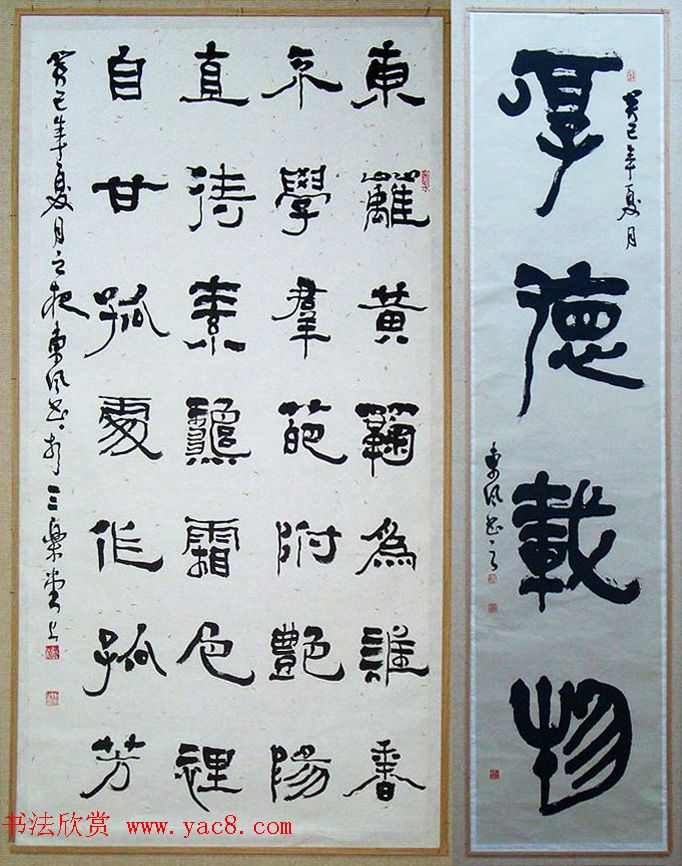 厚德載物
癸巳年夏月
東風書之
東籬黃蘜為誰香
不學羣葩附艷陽
直待素龝霜色裡
自甘孤處作孤芳
癸巳年夏月之夜東風書於三樂堂上
书法欣赏 www.yac8.com